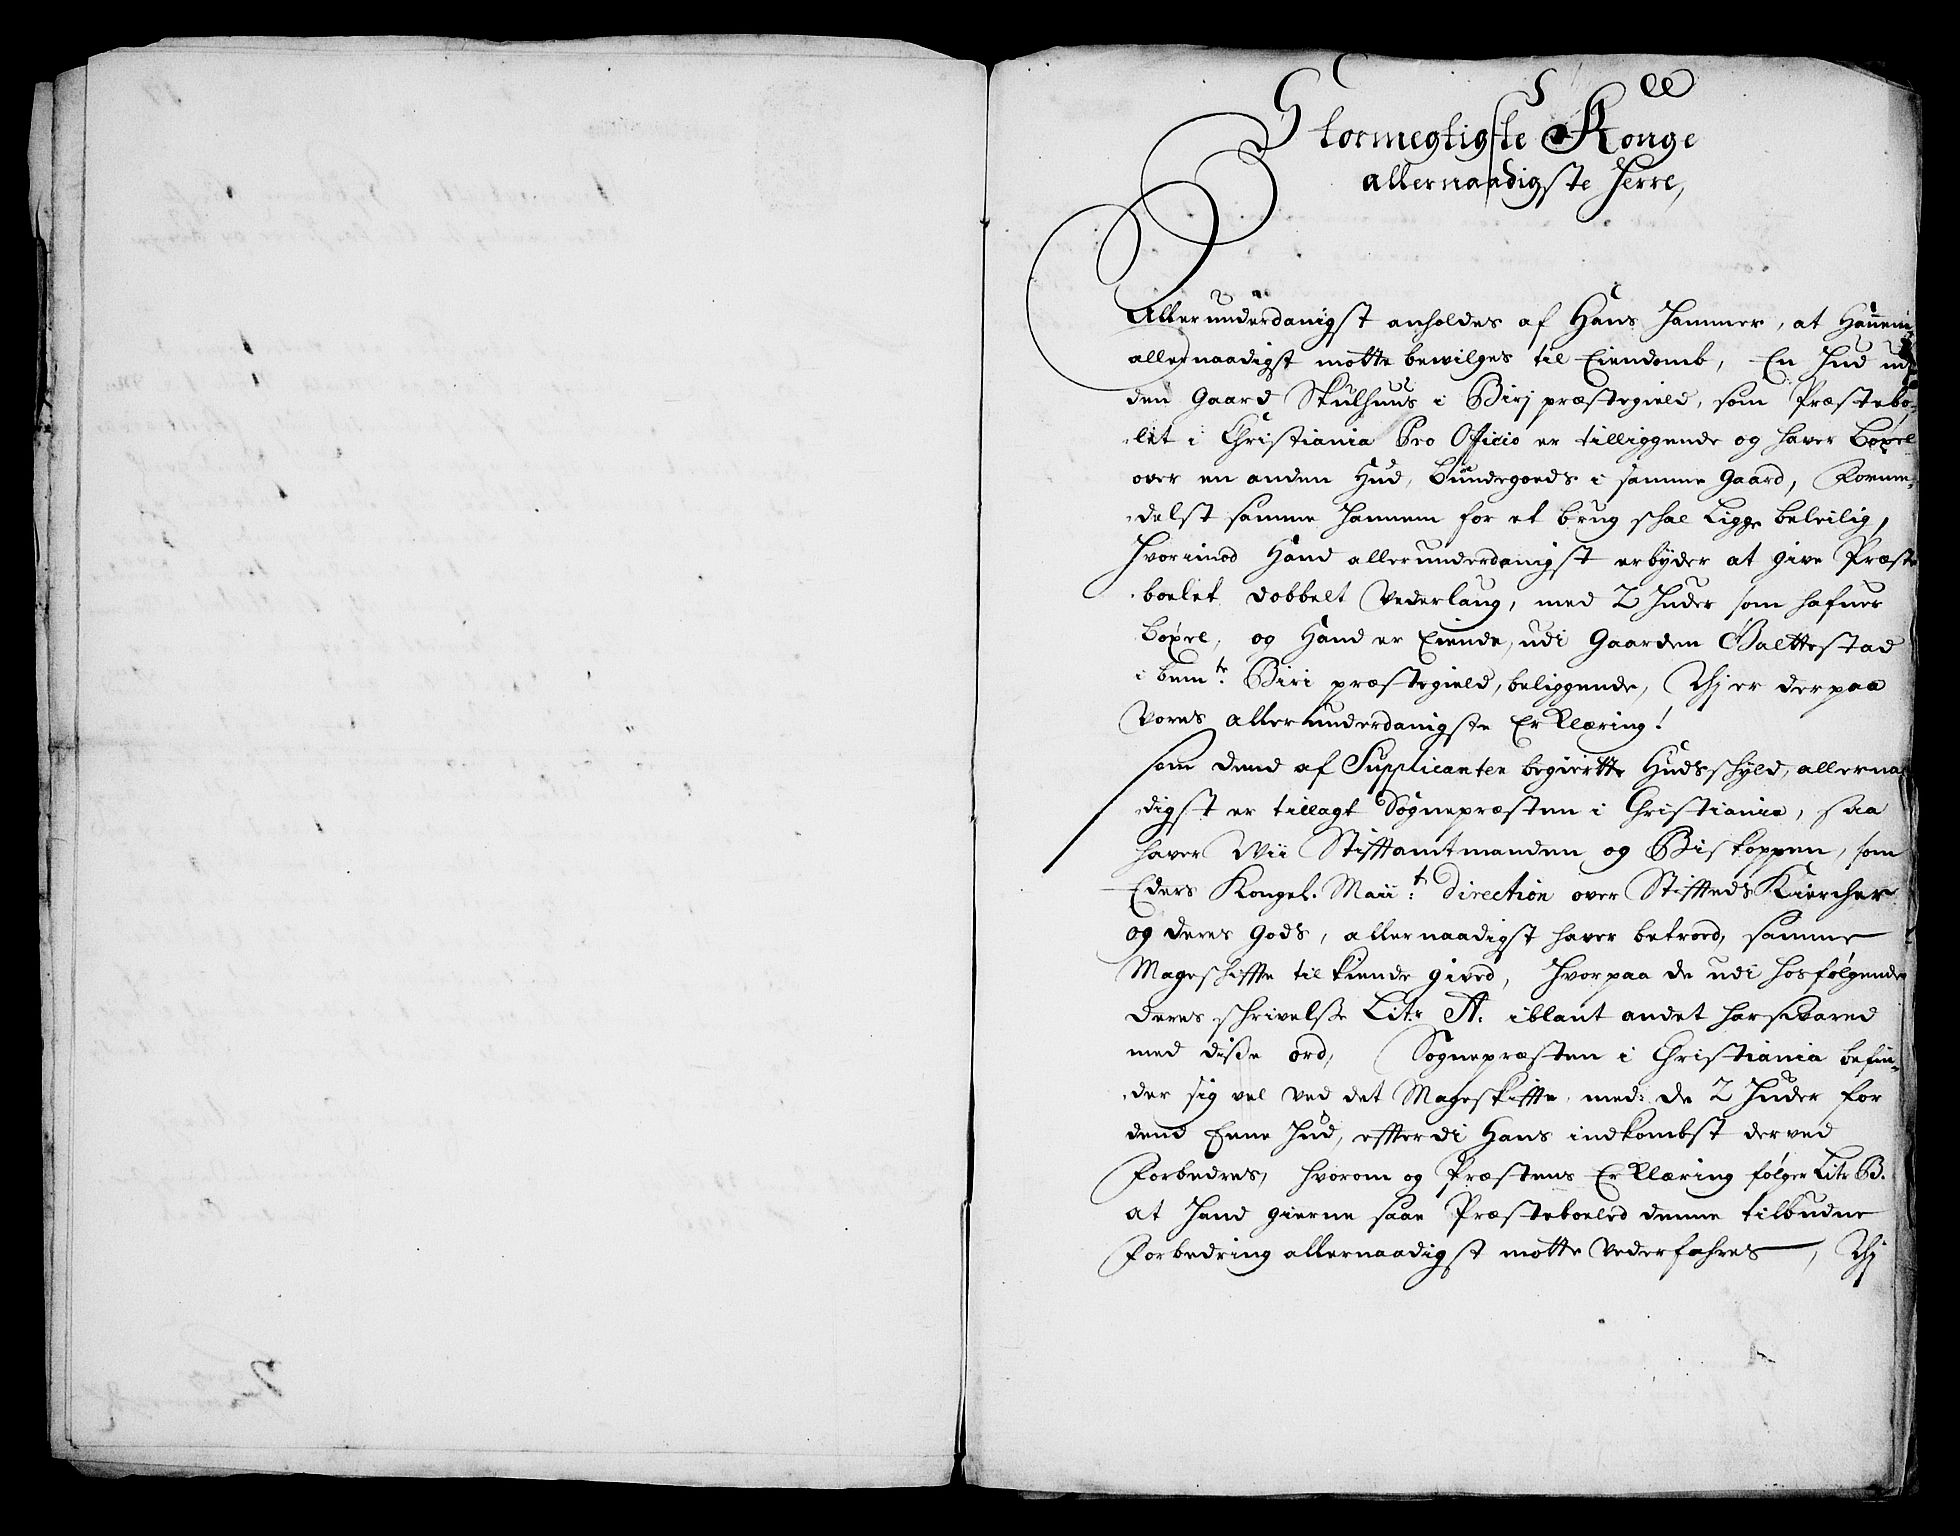 Stormegtigste Konge
allernaadigste Herre,
Allerunderdanigst anholdes af Hans Hammer, at Hannem
allernaadigst motte bewilges til Eiendomb, En Hud udi
den Gaard Skulhuus i Birj præstegield, som Præstebo-
let i Christiania Pro Officio er tilliggende og haver Boxel
over en anden Hud, Bundegoeds i samme Gaard, Formi-
delst samme Hannem for et brug schal Ligge beleilig,
Hvorimod Hand allerunderdanigst erbyder at give Præste
boelet dobbelt Vederlaug, med 2 Huder som hafuer
Boxel, og Hand er Eiende, udi Gaarden Balttestad
i bem:te Biri præstegield, beliggende, Thj er derpaa
Vores allerunderdanigste Erklæring!
Som dend af Supplicanten begiertte Hudsschyld, allernaa
digst er tillagt Sognepræsten i Christiania, saa
haver Wii Stifftamtmanden og Biskoppen, som
Eders Kongel. Maii:t Direction over Stiffteds Kiercher
og deres Gods, allernaadigst haver betroed, samme
Mageschiffte tilkiende gived, Hvorpaa de udi hosfølgende
Deres schrivelsse Litr A. iblant andet har svared
med disse ord, Sognepræsten i Christiania befin-
der sig vel ved det Mageskiffte, med de 2 Huder for
dend Eene Hud, effterdi Hans indkombst derved
Forbedres, hvorom og Præstens Erklæring følger Litr B.
at Hand gierne saae Præsteboeled denne tilbudne
Forbedring allernaadigst motte Vederfahres, Thj